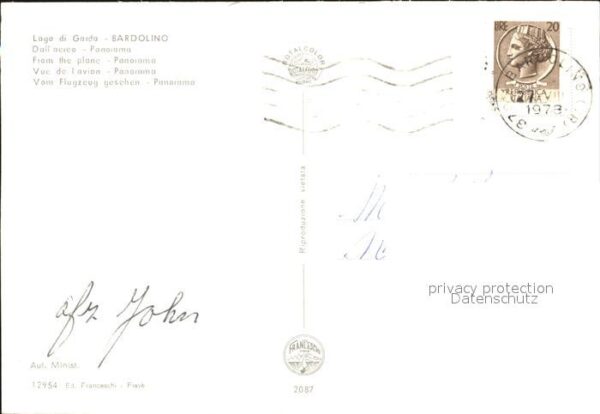 Lago di Garda - BARDOLINO
Dall'aereo - Panorama
From the plane - Panorama
Vue de l'avion - Panorama
Vom Flugzeug gesehen - Panorama
LIRE 20
BARDOLINO
1973
37
Riproduzione vietata
privacy protection
Datenschutz
afz John
FRANCESCHI
Aut. Minist.
12954 Ed. Franceschi -
2087